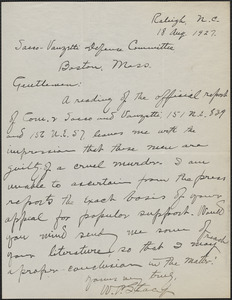 Raleigh N.C.
18 Aug. 1927.
Sacco-Vanzetti Defence Committee
Boston, Mass.
Gentlemen:
A reading of the official report
of Com. v Sacco and Vanzetti, 151 N.E. 839
and 156 N.E. 57 leaves me with the
impression that these men are
guilty of a cruel murder. I am
unable to ascertain from the press
reports the exact basis of your
appeal for popular support. Will
you kind send me some of
your literature so that I may reach
a proper conclusion in the matter?
Yours very truly,
W. P. Stacy